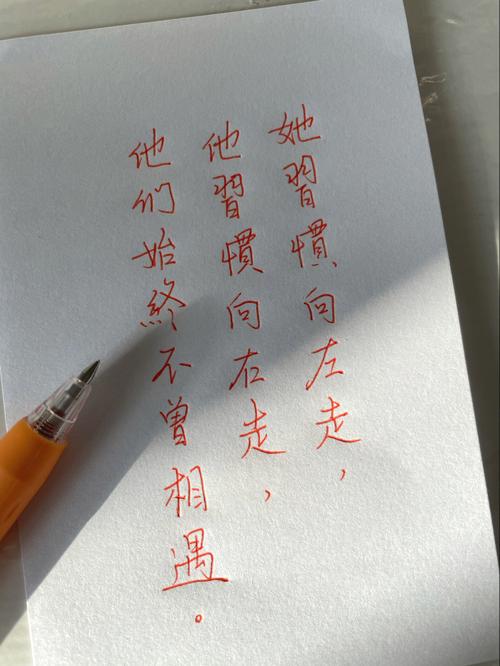 她習慣向左走，
他習慣向右走，
他們始終不曾相遇。